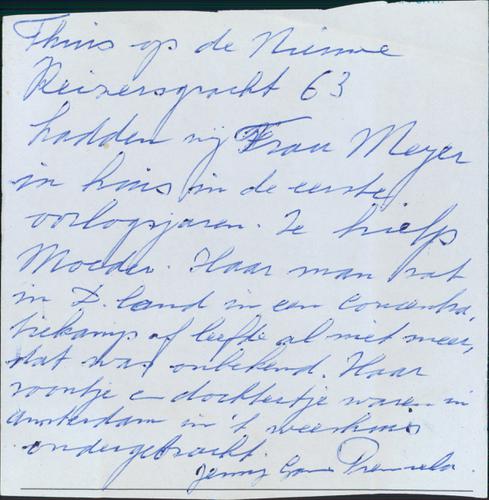 Thuis op de Nieuwe
Keizersgracht 63
hadden wij Frau Meyer
in huis in de eerste
oorlogsjaren. Ze hielp
Moeder. Haar man zat
in D.land in een Concentra,
tiekamp of leefde al niet meer,
dat was onbekend. Haar
zoontje en dochtertje waren in
Amsterdam in 't weeshuis
ondergebracht.
Jenny